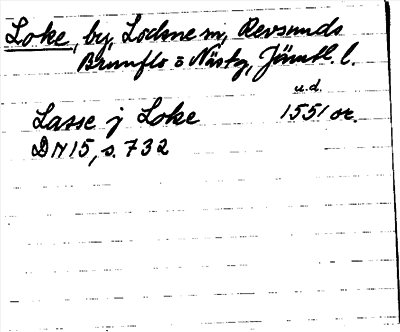 Loke, by, Lockne sn, Revsunds
Brunflo o Näskg, Jämtl. l.
u.d.
Lasse j Loke 1551 or.
DN 15, s. 732